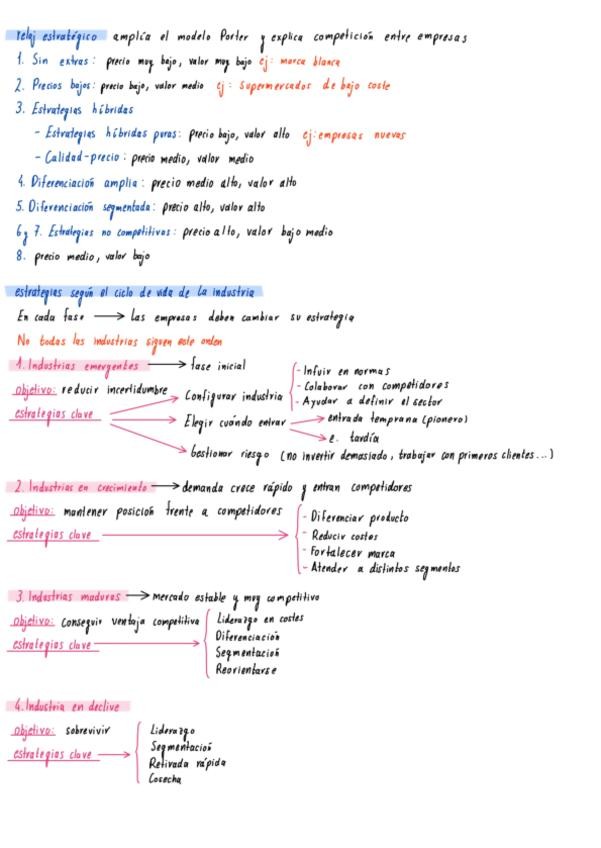 reloj estratégico amplía el modelo Porter y explica competición entre empresas
1. Sin extras: precio muy bajo, valor muy bajo ej: marca blanca
2. Precios bajos: precio bajo, valor medio ej: supermercados de bajo coste
3. Estrategias híbridas
- Estrategias híbridas puras: precio bajo, valor alto ej: empresas nuevas
- Calidad-precio: precio medio, valor medio
4. Diferenciación amplia: precio medio alto, valor alto
5. Diferenciación segmentada: precio alto, valor alto
6 y 7. Estrategias no competitivas: precio alto, valor bajo medio
8. precio medio, valor bajo
estrategias según el ciclo de vida de la industria
En cada fase → las empresas deben cambiar su estrategia
No todas las industrias siguen este orden
1. Industrias emergentes → fase inicial
objetivo: reducir incertidumbre
estrategias clave
Configurar industria
- Infuir en normas
- Colaborar con competidores
- Ayudar a definir el sector
Elegir cuándo entrar → entrada temprana (pionero)
→ e. tardía
Gestionar riesgo (no invertir demasiado, trabajar con primeros clientes...)
2. Industrias en crecimiento → demanda crece rápido y entran competidores
objetivo: mantener posición frente a competidores
estrategias clave
- Diferenciar producto
- Reducir costes
- Fortalecer marca
- Atender a distintos segmentos
3. Industrias maduras → mercado estable y muy competitivo
objetivo: conseguir ventaja competitiva
estrategias clave
Liderazgo en costes
Diferenciación
Segmentación
Reorientarse
4. Industria en declive
objetivo: sobrevivir
estrategias clave
Liderazgo
Segmentación
Retirada rápida
Cosecha